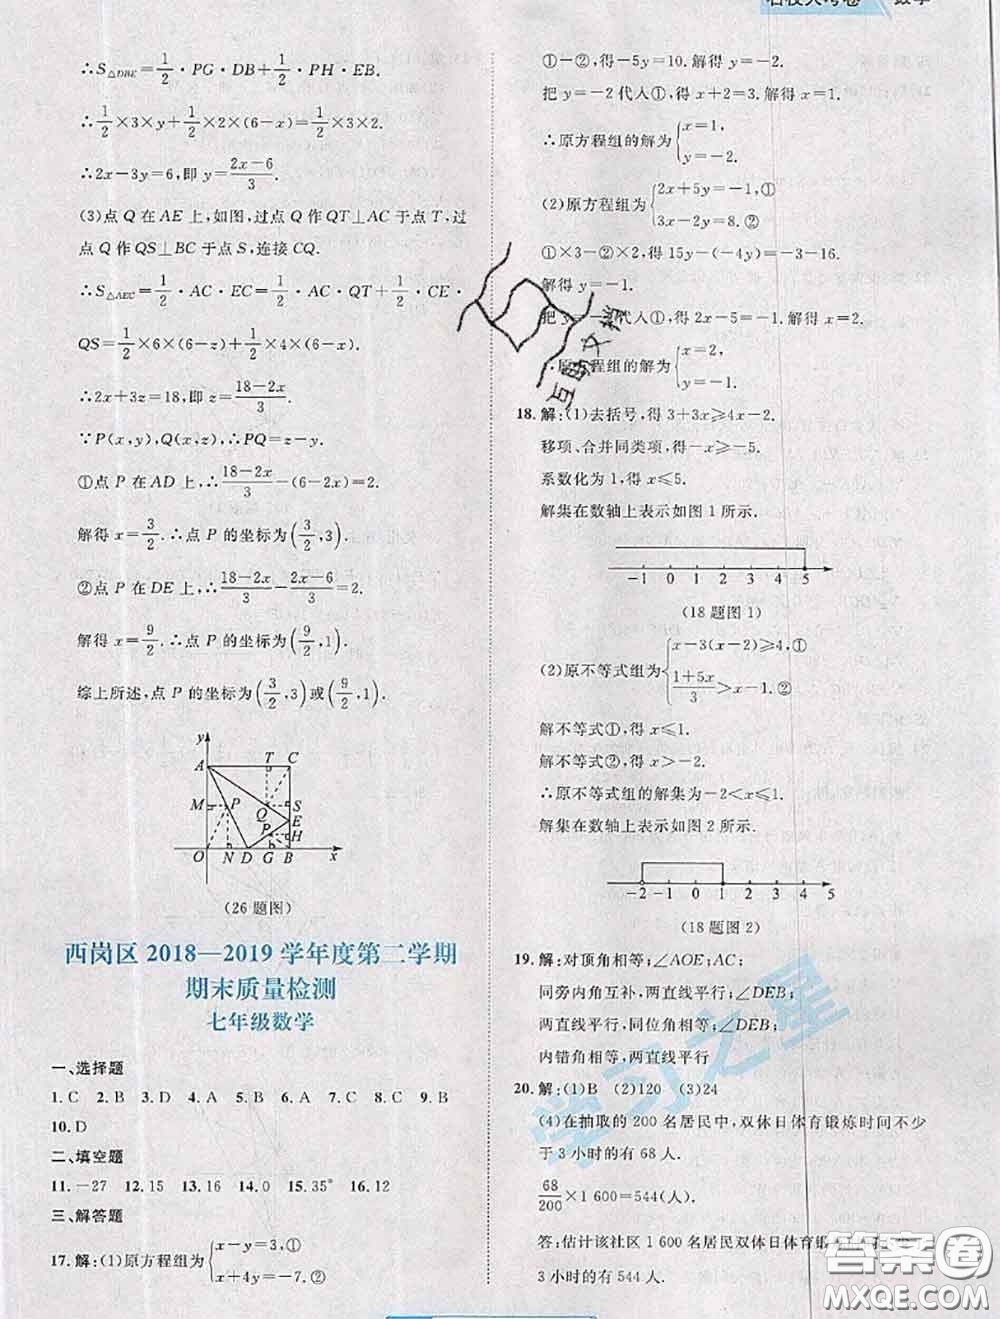 名校大考卷 数学
∴S△DBE=1/2·PG·DB+1/2·PH·EB.
∴1/2×3×y+1/2×2×(6-x)=1/2×3×2.
∴2x-3y=6,即 y=(2x-6)/3.
(3)点 Q 在 AE 上,如图,过点 Q 作 QT⊥AC 于点 T,过
点 Q 作 QS⊥BC 于点 S,连接 CQ.
∴S△AEC=1/2·AC·EC=1/2·AC·QT+1/2·CE·
QS=1/2×6×(6-z)+1/2×4x=1/2×4×6.
∴2x+3z=18,即 z=(18-2x)/3.
∵P(x,y),Q(x,z),∴PQ=z-y.
①点 P 在 AD 上,∴(18-2x)/3-(6-2x)=2.
解得 x=3/2.∴点 P 的坐标为(3/2,3).
②点 P 在 DE 上,∴(18-2x)/3-(2x-6)/3=2.
解得 x=9/2.∴点 P 的坐标为(9/2,1).
综上所述,点 P 的坐标为(3/2,3)或(9/2,1).
y
A T C
M P Q S
E
P H
O N D G B x
(26 题图)
西岗区 2018—2019 学年度第二学期
期末质量检测
七年级数学
一、选择题
1.C 2.B 3.D 4.A 5.D 6.A 7.C 8.C 9.B
10.D
二、填空题
11.-27 12.15 13.16 14.0 15.35° 16.12
三、解答题
17.解:(1)原方程组为{x-y=3,①
x+4y=-7.②
①-②,得-5y=10.解得 y=-2.
把 y=-2代入①,得 x+2=3.解得 x=1.
∴原方程组的解为{x=1,
y=-2.
(2)原方程组为{2x+5y=-1,①
3x-2y=8.②
①×3-②×2,得 15y-(-4y)=-3-16.
解得 y=-1.
把 y=-1代入①,得 2x-5=-1.解得 x=2.
∴原方程组的解为{x=2,
y=-1.
18.解:(1)去括号,得 3+3x≥4x-2.
移项、合并同类项,得-x≥-5.
系数化为 1,得 x≤5.
解集在数轴上表示如图 1 所示.
-1 0 1 2 3 4 5
(18 题图 1)
(2)原不等式组为{x-3(x-2)≥4,①
(1+5x)/3>x-1.②
解不等式①,得 x≤1.
解不等式②,得 x>-2.
∴原不等式组的解集为-2<x≤1.
解集在数轴上表示如图 2 所示.
-2 -1 0 1 2 3 4 5
(18 题图 2)
19.解:对顶角相等;∠AOE;AC;
同旁内角互补,两直线平行;∠DEB;
两直线平行,同位角相等;∠DEB;
内错角相等,两直线平行
20.解:(1)B (2)120 (3)24
(4)在抽取的 200 名居民中,双休日体育锻炼时间不少
于 3 小时的有 68 人.
68/200×1 600=544(人).
答:估计该社区 1 600 名居民双休日体育锻炼时间不少
于 3 小时的有 544 人.
互助文档
学习之星
答案卷
MXQE.COM